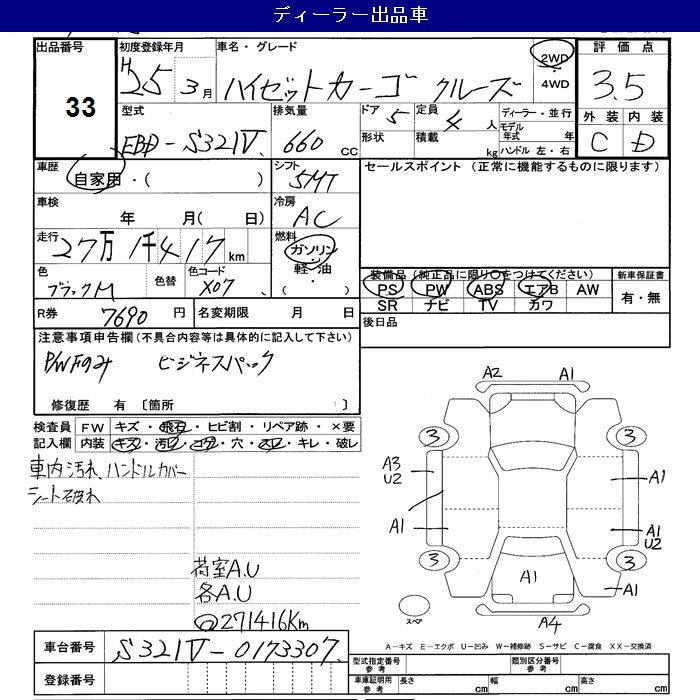 ディーラー出品車
出品番号
33
初度登録年月
H25 3月
車名・グレード
ハイゼットカーゴ クルーズ
2WD
4WD
評価点
3.5
外装 内装
C D
型式
EBD-S321V
排気量
660 cc
ドア 5
形状
定員 4 人
積載 kg
ディーラー・並行
モデル年式 年
ハンドル 左・右
車歴
自家用・( )
シフト
5MT
セールスポイント (正常に機能するものに限ります)
車検
年 月( 日)
冷房
AC
走行
27万1千417km
燃料
ガソリン・
軽・油
・( )
色
ブラックM
色替
色コード
X07
装備品(純正品に限り○をつけてください)
PS PW ABS エアB AW
SR ナビ TV カワ
新車保証書
有・無
R券 7690円
名変期限 月 日
後日品
注意事項申告欄(不具合内容等は具体的に記入して下さい)
P/WFのみ ビジネスパック
修復歴 有 〔箇所 〕
検査員記入欄
FW キズ・飛石・ヒビ割・リペア跡・×要
内装 キズ・汚レ・コゲ・穴・スレ・キレ・破レ
車内汚れ、ハンドルカバー
シート破れ
荷室A.U
各A.U
@271416Km
A2 A1
3 3
A3
U2
A1
A1
A1
U2
A1
3 3
A1
スペア
A4
A-キズ E-エクボ U-凹み W-補修跡 S-サビ C-腐食 XX-交換済
車台番号 S321V-0173307
登録番号
型式指定番号 参考
類別区分番号 参考
車庫証明用 参考
長さ cm 幅 cm 高さ cm